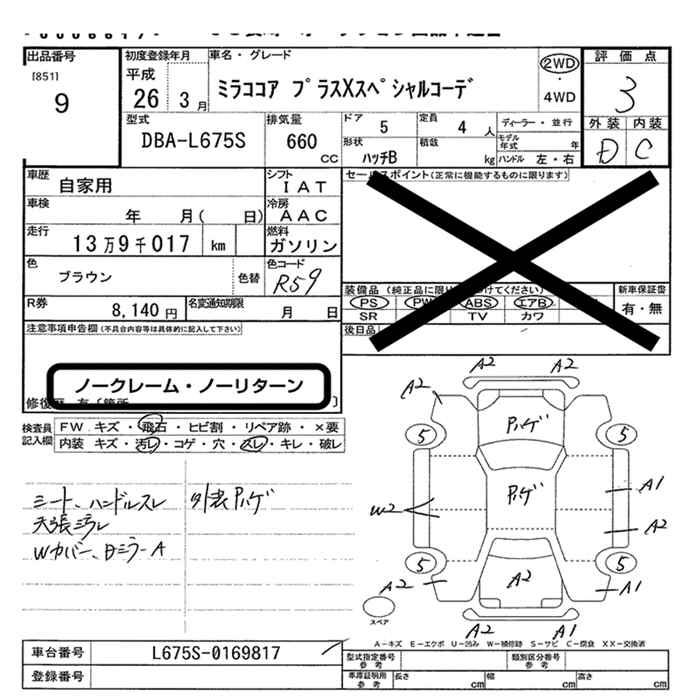 出品番号
[851]
9
初度登録年月
平成
26 3月
車名・グレード
ミラココア プラスXスペシャルコーデ
2WD
・
4WD
評価点
3
外装 内装
D C
型式
DBA-L675S
排気量
660
CC
ドア
5
定員
4 人
ディーラー・並行
モデル年式 年
形状
ハッチB
積載
kg
ハンドル 左・右
車歴
自家用
シフト
IAT
車検
年 月( 日)
冷房
AAC
走行
13万9千017 km
燃料
ガソリン
色
ブラウン
色替
色コード
R59
R券
8,140円
名変通知期限
月 日
セールスポイント(正常に機能するものに限ります)
装備品(純正品に限り
けてください)
PS PW ABS エアB
SR TV カワ
新車保証書
有・無
後日品
注意事項申告欄(不具合内容等は具体的に記入して下さい)
ノークレーム・ノーリターン
検査員記入欄
FW キズ・飛石・ヒビ割・リペア跡・×要
内装 キズ・汚レ・コゲ・穴・スレ・キレ・破レ
シート、ハンドルスレ
外装Pハゲ
Wカバー、Bミラ-A
A2 A2
A2
Pハゲ
5 5
Pハゲ
A1
W2
A2
5 5
A2 A2 A1
A2 A1
スペア
A-キズ E-エクボ U-凹み W-補修跡 S-サビ C-腐食 XX-交換済
車台番号
L675S-0169817
登録番号
型式指定番号
参考
類別区分番号
参考
車庫証明用
参考
長さ cm 幅 cm 高さ cm